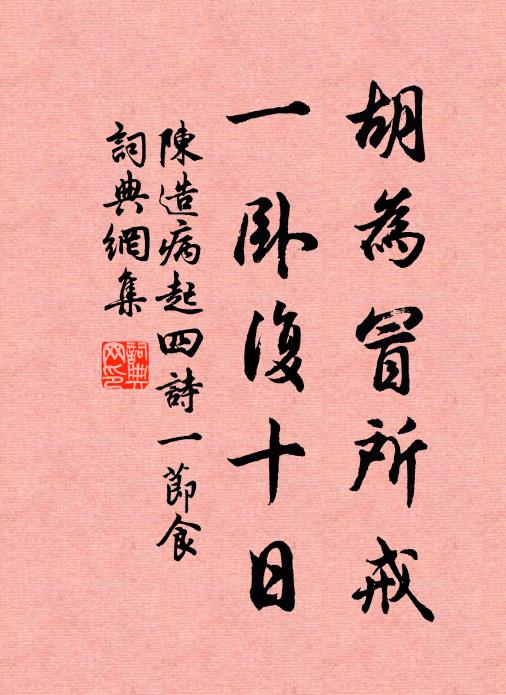 胡為冒所戒
一卧復十日
陳造病起四詩一節食
詞典網集
詞典網印